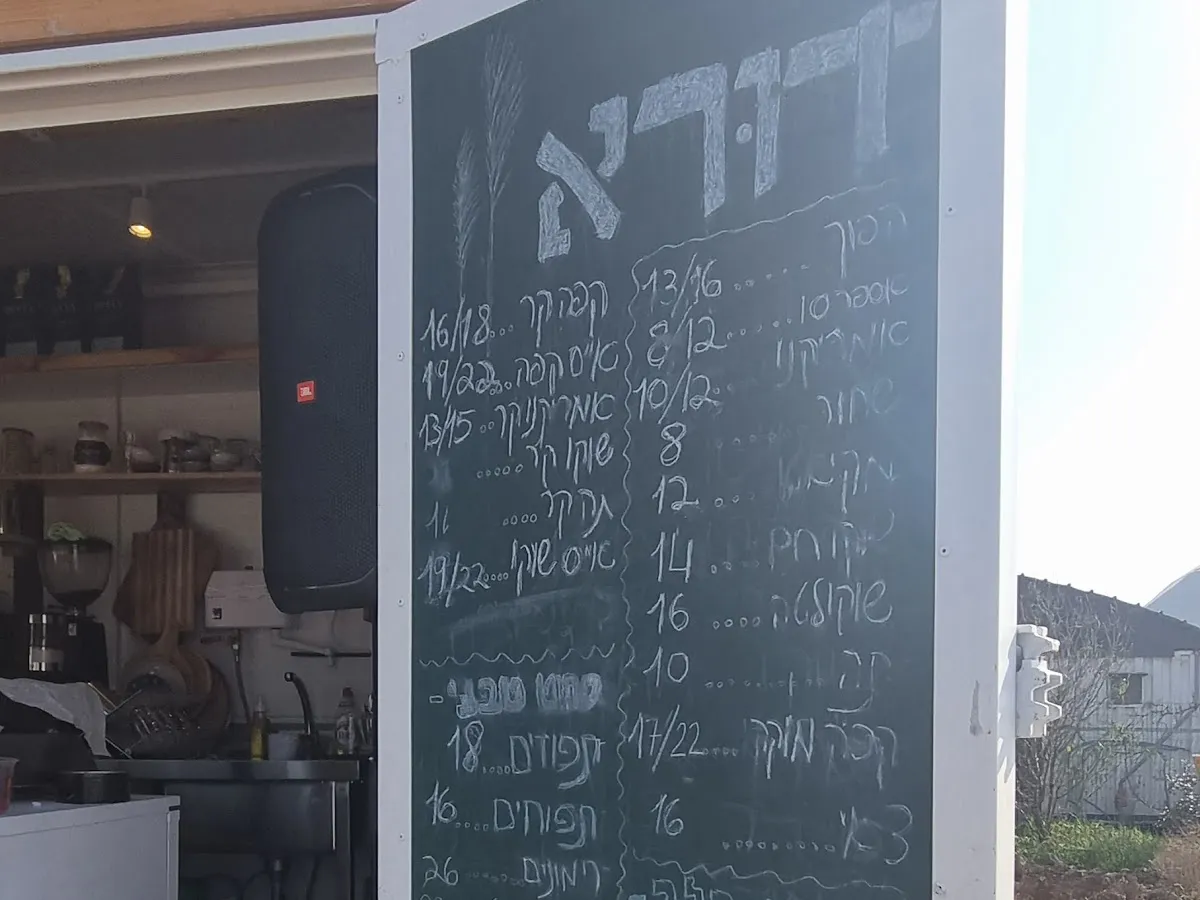 דוריא
הפוך ..... 13/16
אספרסו ...... 8/12
אמריקנו 10/12
שחור .... 8
מקיאטו ... 12
שוקו חם .. 14
שוקולטה .... 16
תה ...... 10
קפה מוקה .... 17/22
צ'אי ......... 16
קפה קר ... 16/18
אייס קפה ... 19/22
אמריקנו קר .. 13/15
שוקו קר .....
תה קר ....
אייס שוקו ... 19/22
סחוט טבעי -
תפוזים ... 18
תפוחים .... 16
רימונים ..... 26
JBL